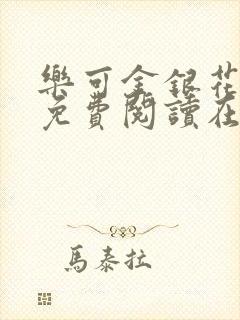 樂可金銀花
免費閱讀在
馬泰拉